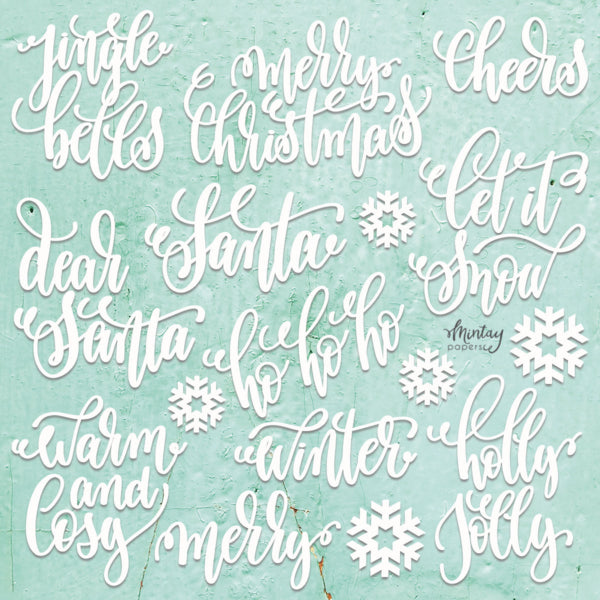 jingle
bells
merry
Christmas
Cheers
let it
Snow
dear
Santa
Santa
ho ho ho
Mintay
papers
warm
and
Cosy
winter
merry
holly
Jolly